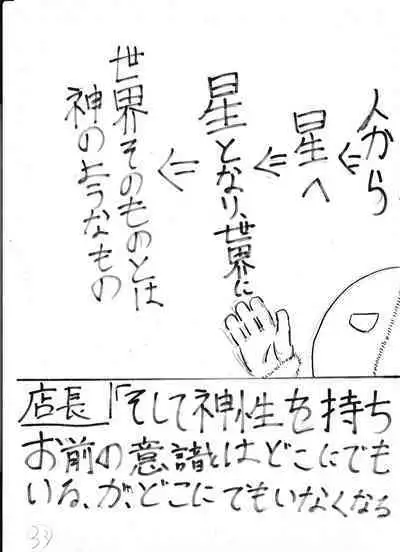 人から
⇐
星へ
⇐
星となり、世界に
⇐
世界そのものとは
神のようなもの
店長「そして神性を持ち
お前の意諸とはどこにでも
いる、が、どこにでもいなくなる
33